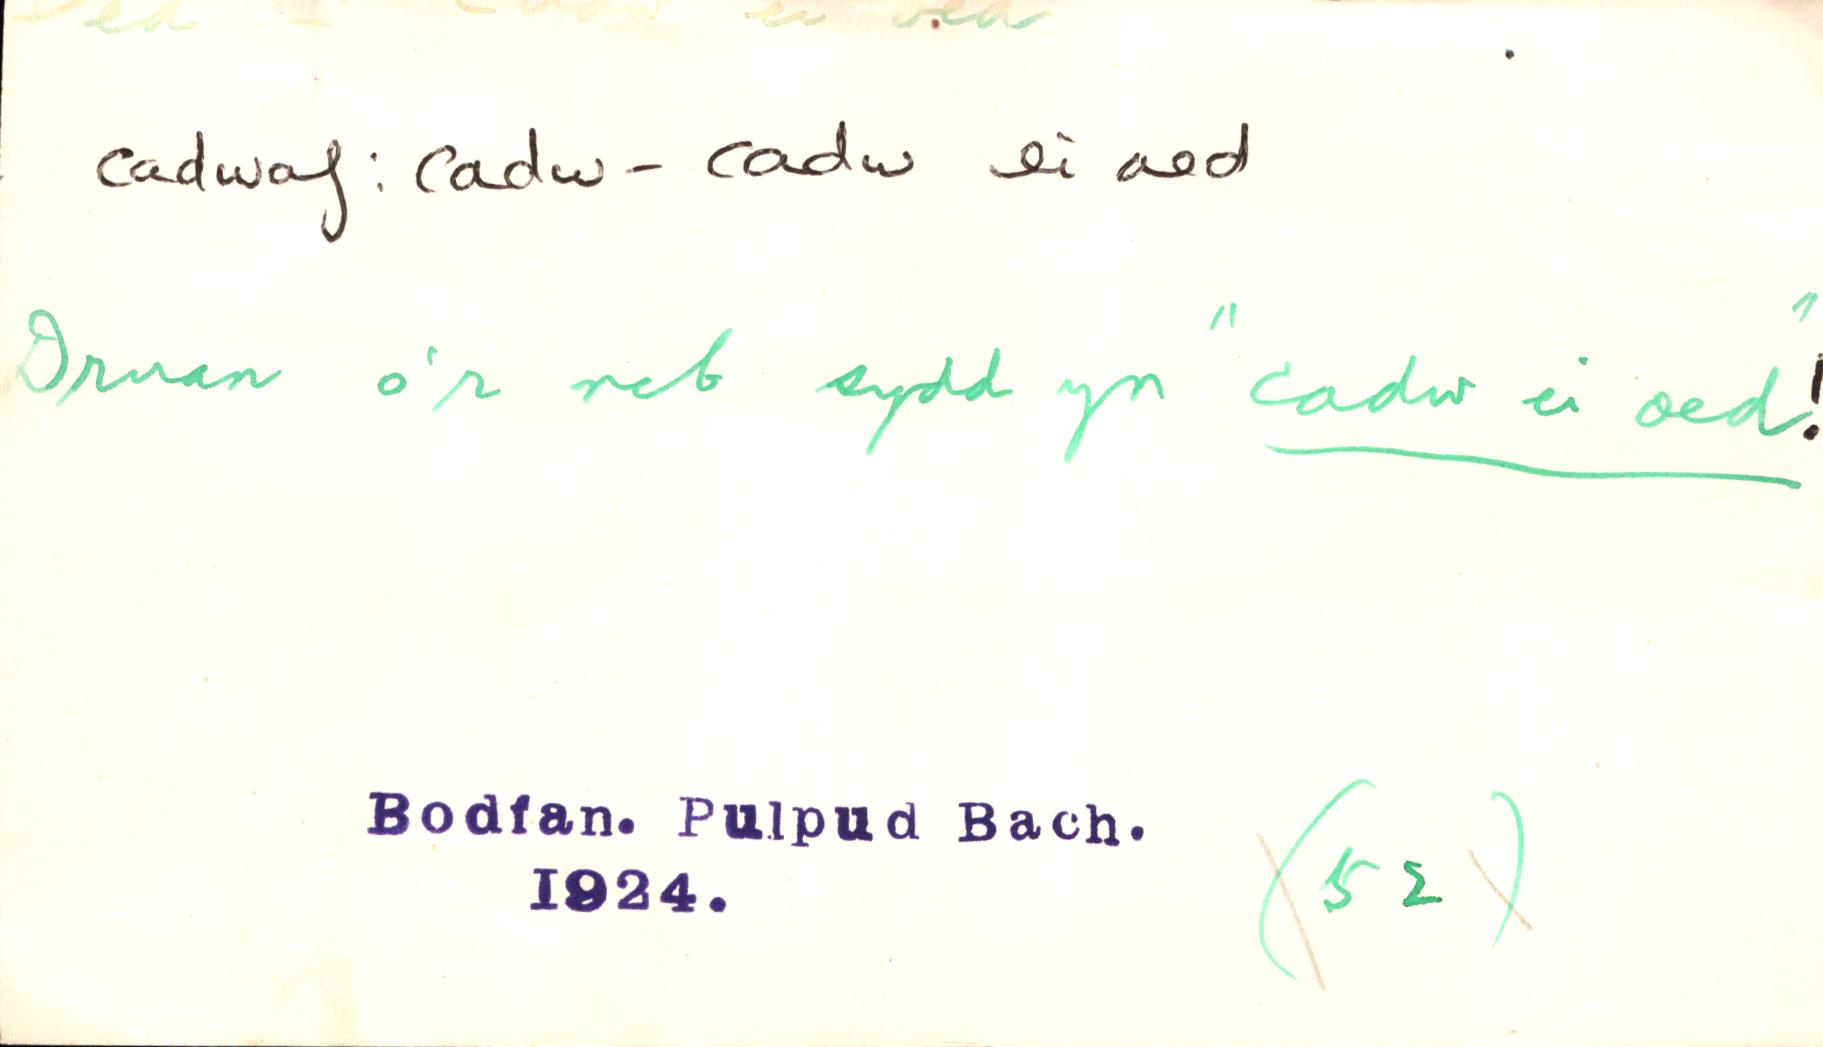 cadw ei oed
cadwaf: cadw - cadw ei oed
Druan o'r neb sydd yn "cadw ei oed"!
Bodfan. Pulpud Bach.
1924.
(52)